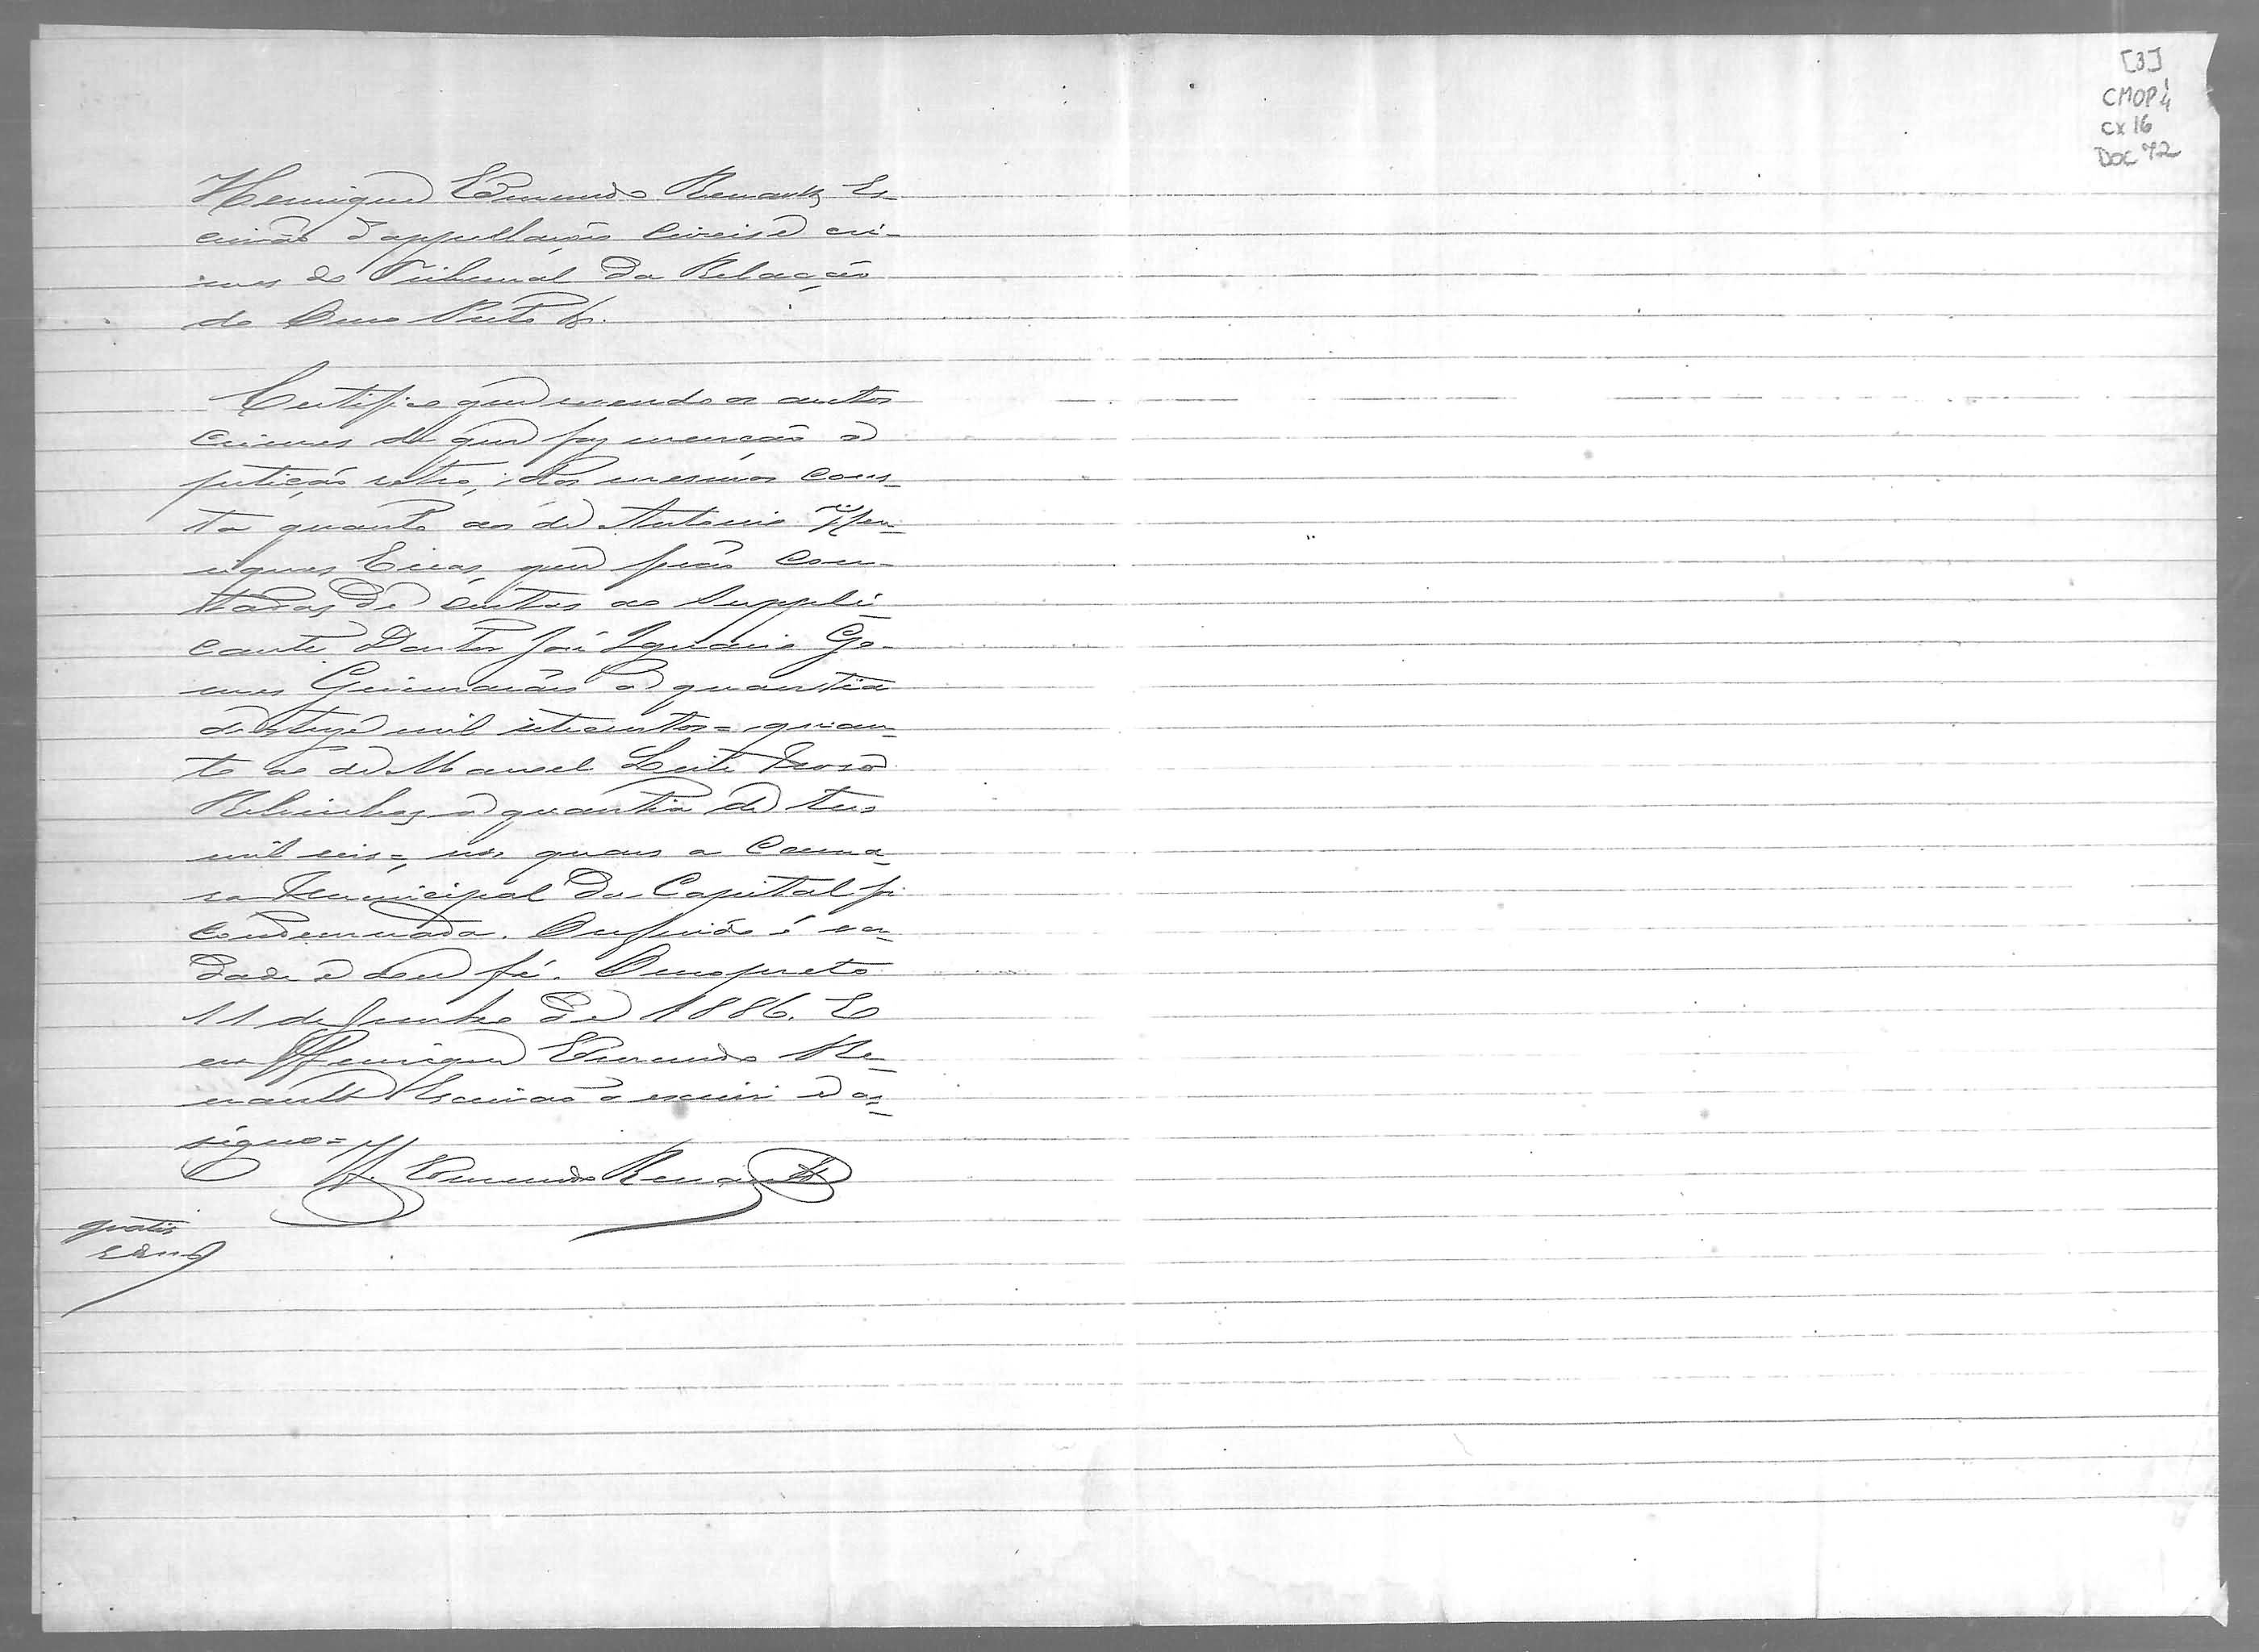 [3]
CMOP 4
CX 16
DOC 72
Henrique Edmundo Renault, Es-
crivão d'appellações civeis e cri-
mes do Tribunal da Relação
do Ouro Preto &.
Certifico que vendo os autos
crimes de que faz menção a
petição retro, dos mesmos cons-
ta quanto ao de Antonio Hen-
riques que forão con-
tadas de custas ao Suppli-
cante Doutor José Ignacio Go-
mes Guimarães a quantia
de mil setecentos = quan-
to ao de Manoel Leite
a quantia de tres
mil reis =, nos quaes a Cama-
ra Municipal da Capital foi
condemnada. O referido é ver-
dade e dou fé. Ouro preto
11 de Junho de 1886. E
eu Henrique Edmundo Re-
nault Escrivão o escrevi e as-
signo =
H. Edmundo Renault
gratis